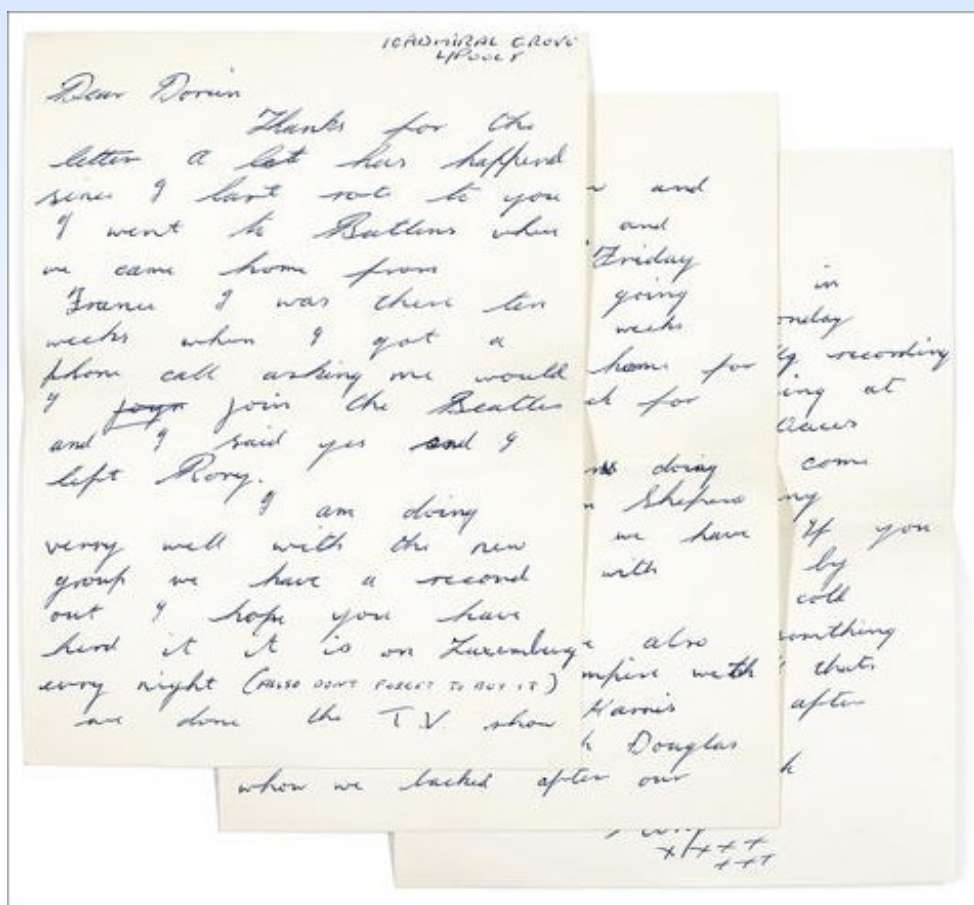 10 ADMIRAL GROVE
L/POOL 8
Dear Doreen
Thanks for the
letter a lot has happend
sence I last rote to you
I went to Butlens when
we came home from
France I was there ten
weeks when I got a
phone call asking me would
I join the Beatles
and I said yes and I
left Rory.
I am doing
verry well with the new
group we have a record
out I hope you have
herd it it is on Luxemburge
evry night (ALLSO DONT FORGET TO BUY IT)
we done the T.V. show
and
and
Friday
going
weeks
home for
for
doing
Sheperd
we have
with
also
with
Karris
Douglas
whow we backed after our
in
recording
at
come
If you
by
thats
after
x x x x x
x x x